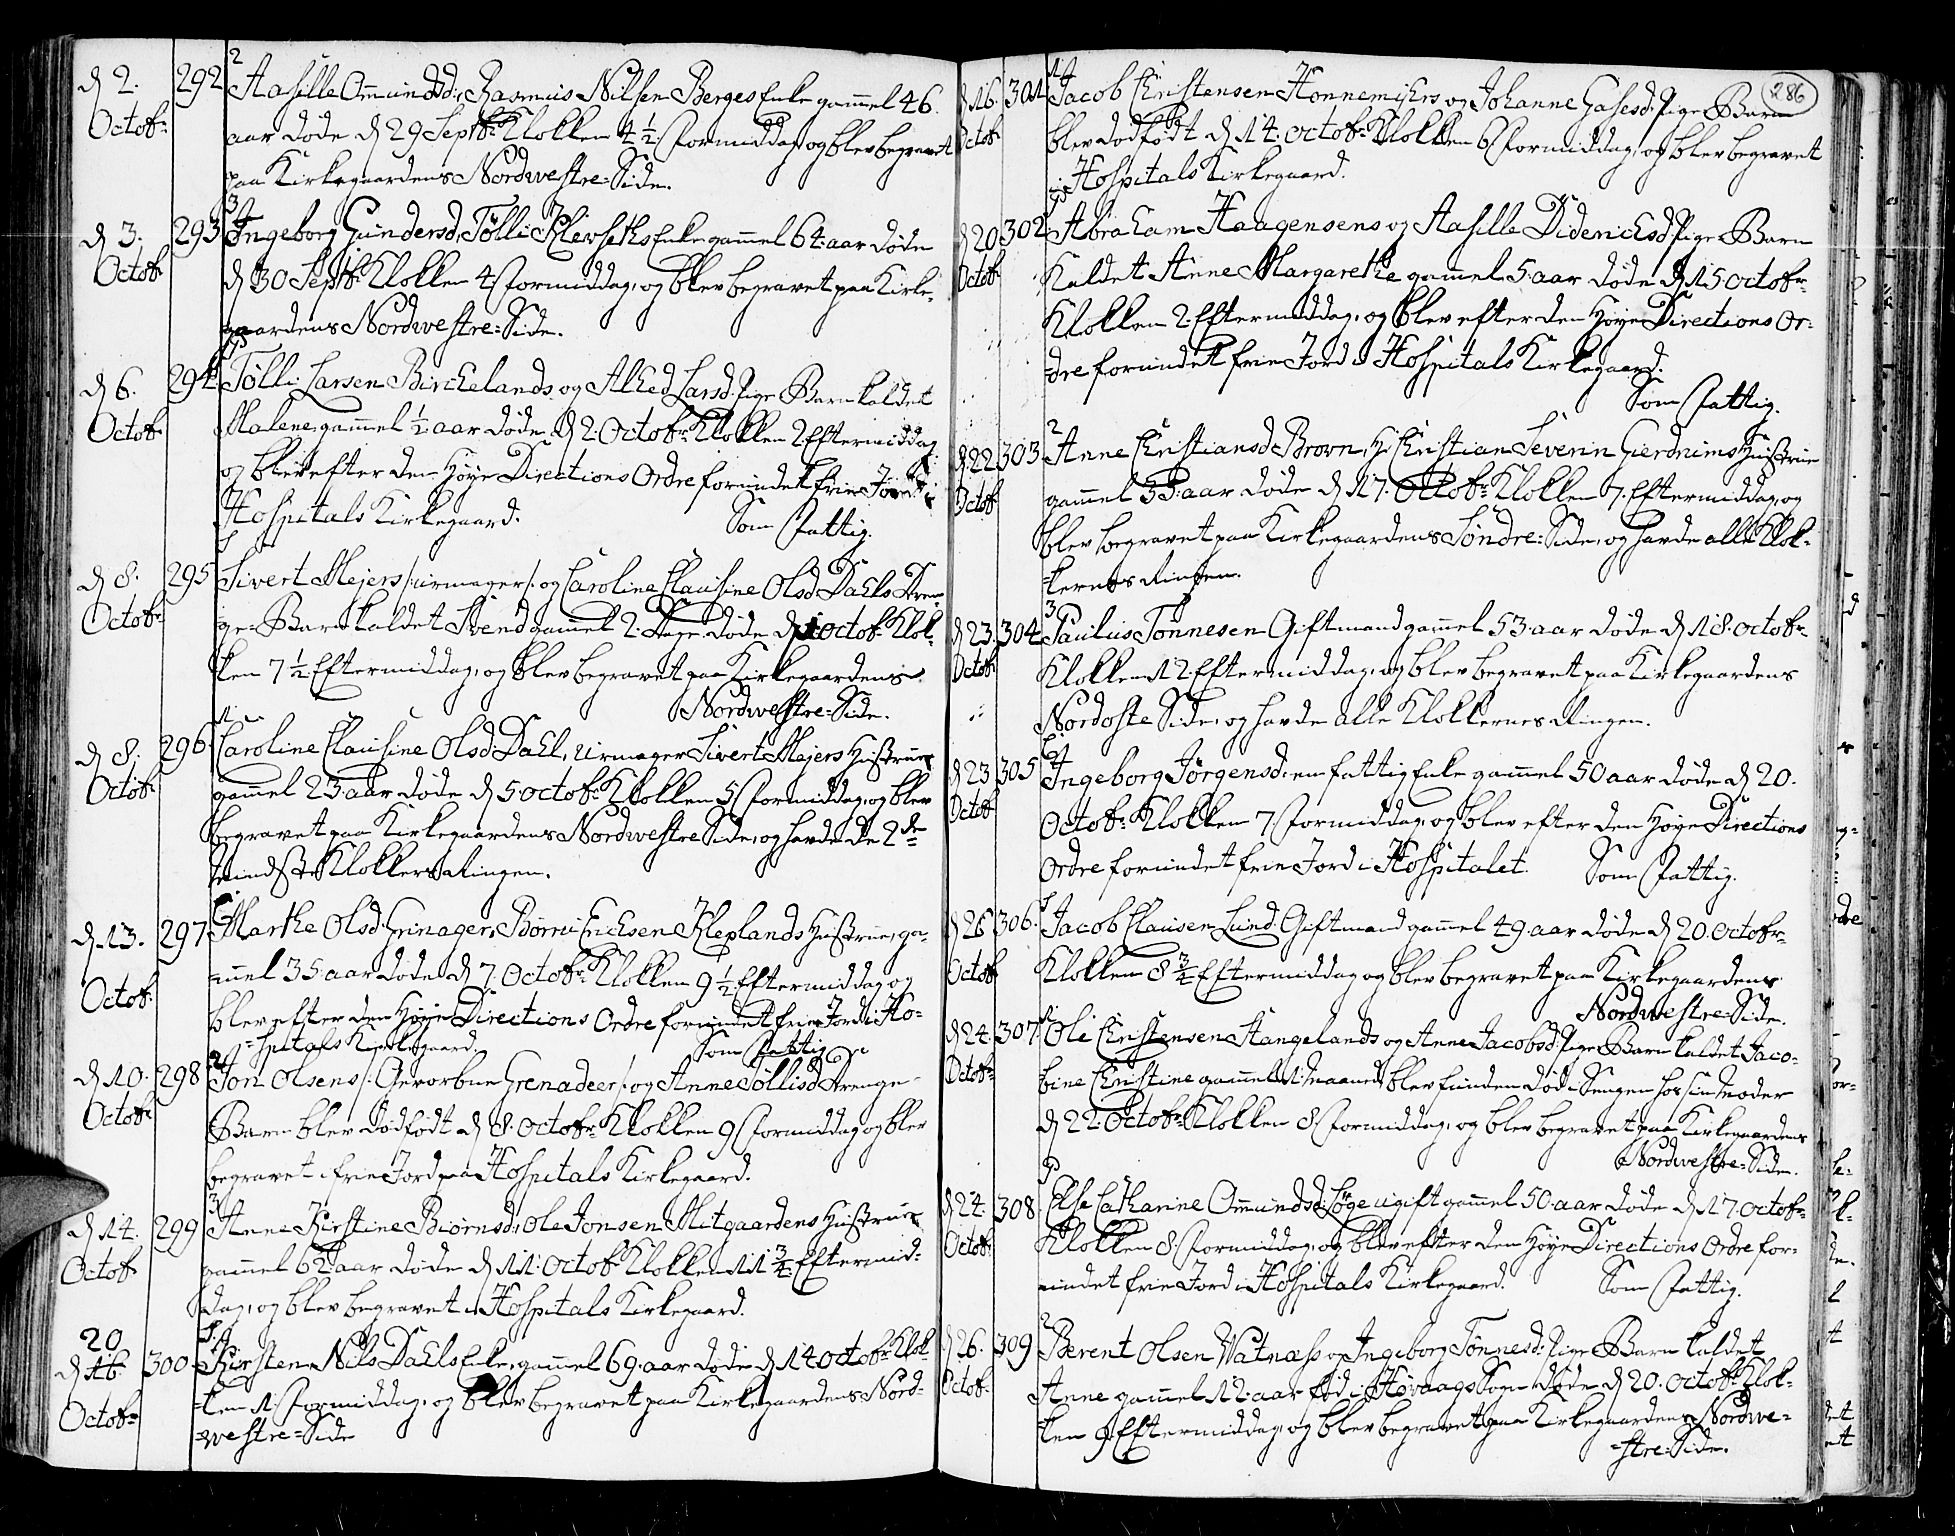 d 2. Octobr 292 2
Aasille Omundsd:, Rasmus Nilsen Berges Enke gammel 46.
aar døde d 29 Septbr Klokken 4½ Formiddag, og blev begravet
paa Kirkegaardens Nordwestre=Side.
d 3. Octobr 293 3
Ingeborg Gundersd, Tølli Klevseths Enke gammel 64 aar døde
d 30 Septbr Klokken 4 Formiddag, og blev begravet paa Kirke=
gaardens Nordwestre=Side.
d 6. Octobr 294
Tølli Larsen Birchelands og Alhed Larsd: Pige Barn kaldet
Malene gammel ½ aar døde d 2 Octobr Klokken 2 Eftermiddag
og blev efter den Høye Directions Ordre forundet frie Jord i
Hospitals Kirkegaard. Som Fattig.
d 8. Octobr 295
Sivert Mejers /: uirmager :/ og Caroline Clausine Olsd Dahls Dren=
ge=Barn kaldet Svend gammel 2 Dage døde d Octobr Klok=
ken 7½ Eftermiddag, og blev begravet paa Kirkegaardens
Nordwestre=Side.
d 8. Octobr 296
Caroline Clausine Olsd Dahl, uirmager Sivert Mejers Hustrue
gammel 25 aar døde d 5 Octobr Klokken 5 Formiddag, og blev
begravet paa Kirkegaardens Nordwestre Side, og havde de 2de
mindste Klokkers Ringen.
d 13. Octobr 297
Marthe Olsd Grinager, Børru Erichsen Kleplands Hustrue, ga=
=mmel 35 aar døde d 7 Octobr Klokken 9½ Eftermiddag og
blev efter den Høye Directions Ordre forundet frie Jord i Ho=
=spitals Kirkegaard. Som Fattig
d 10. Octobr 298
Jon Olsens /: Gevorbne Grenadeer :/ og Anne Tøllisd Drenge=
Barn blev dødfødt d 8. Octobr Klokken 9 Formiddag og blev
begravet i frie Jord paa Hospitals Kirkegaard.
d 14. Octobr 299 3
Anne Kirstine Biørnsd, Ole Jonsen Mitgaardens Hustrue
gammel 62 aar døde d 11 Octobr Klokken 11¾ Eftermid=
dag, og blev begravet i Hospitals Kirkegaard.
20 d 16. Octobr 300
Kirsten Nils Dahls Enke, gammel 69 aar døde d 14 Octobr Klok=
=ken 1 Formiddag, og blev begravet paa Kirkegaardens Nord=
=westre=Side
286
d 16. Octobr 301
Jacob Christensen Honnemihrs og Johanne Gasesd: Pige Barn
blev dødfødt d 14. Octobr Klokken 6 Formiddag, og blev begravet
i Hospitals Kirkegaard.
d 20 Octobr 302
Abraham Haagensens og Aasille Diderichsd Pige Barn
Kaldet Anne Margarethe gammel 5 aar døde d 15 Octobr
Klokken 2 Eftermiddag, og blev efter den Høye Directions Or=
=dre forundet frie Jord i Hospitals Kirkegaard.
Som Fattig.
d 22 Octobr 303 2
Anne Christiansd Brown, Hr Christian Severin Gierdrums Hustrue
gammel 55 aar døde d 17. Octobr Klokken 7. Eftermiddag, og
blev begravet paa Kirkegaardens Søndre=Side, og havde alle Klok=
=kernes Ringen.
d 23. Octobr 304 3
Paulus Tønnesen Giftmand gammel 53 aar døde d 18 Octobr
Klokken 12 Eftermiddag, og blev begravet paa Kirkegaardens
Nordoste Side, og havde alle Klokkernes Ringen.
d 23 Octobr 305
Ingeborg Jørgensd: en fattig Enke gammel 50 aar døde d 20.
Octobr Klokken 7 Formiddag, og blev efter den Høye Directions
Ordre forundet frie Jord i Hospitalet. Som Fattig.
d 26 Octobr 306.
Jacob Clausen Lund Giftmand gammel 49 aar døde d 20. Octobr
Klokken 8¾ Eftermiddag og blev begravet paa Kirkegaardens
Nordwestre=Side.
d 24. Octobr 307.
Ole Christensen Stangelands og Anne Jacobsd: Pige Barn kaldet Jaco=
bine Christine gammel 1 Maaned, blev funden død i Sengen hos sin Moder
d 22 Octobr Klokken 8 Formiddag, og blev begravet paa Kirkegaardens
Nordwestre=Side.
d 24. Octobr 308.
Else Cathanine Omundsd: ugift gammel 50 aar døde d 17. Octobr
Klokken 8 Formiddag, og blev efter den Høye Directions Ordre for=
undet frie Jord i Hospitals Kirkegaard. Som Fattig.
d 26. Octobr. 309 2
Berent Olsen Watnæss og Ingeborg Tønnesd: Pige Barn kaldet
Anne gammel 12 aar fød i Høvaags Sogn døde d 20. Octobr Klok=
ken 9 Eftermiddag, og blev begravet paa Kirkegaardens Nordwe=
=stre=Side.